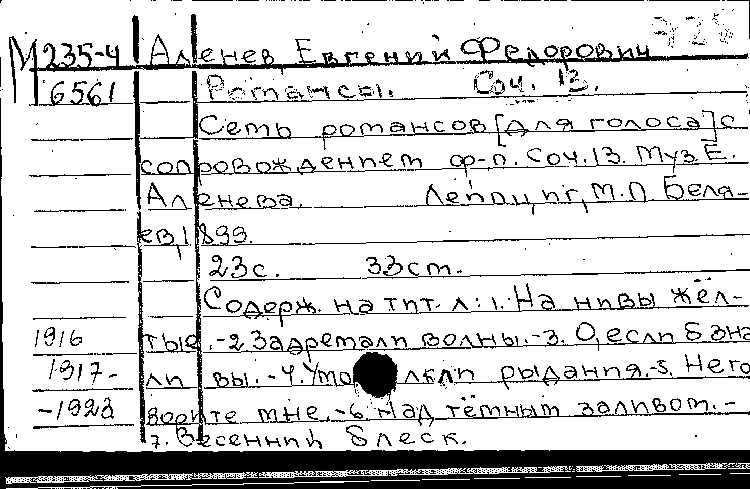 М235-4 Аленев, Евгений Федорович
6561 Романсы. Соч. 13.
Семь романсов [для голоса] с
сопровождением ф-п. Соч. 13. Муз Е.
Аленева. Лейпциг, М.П. Беля-
ев, 1899.
23с. 33cm.
Содерж. на тит. л: 1. На нивы жёл-
1916 тые. -2 Задремали волны. -3. О, если б зна
1917- ли вы. -4. Умо лкли рыдания. -5. Него
-1922 ворите мне. -6. Над тёмным заливом. -
7. Весенний блеск.